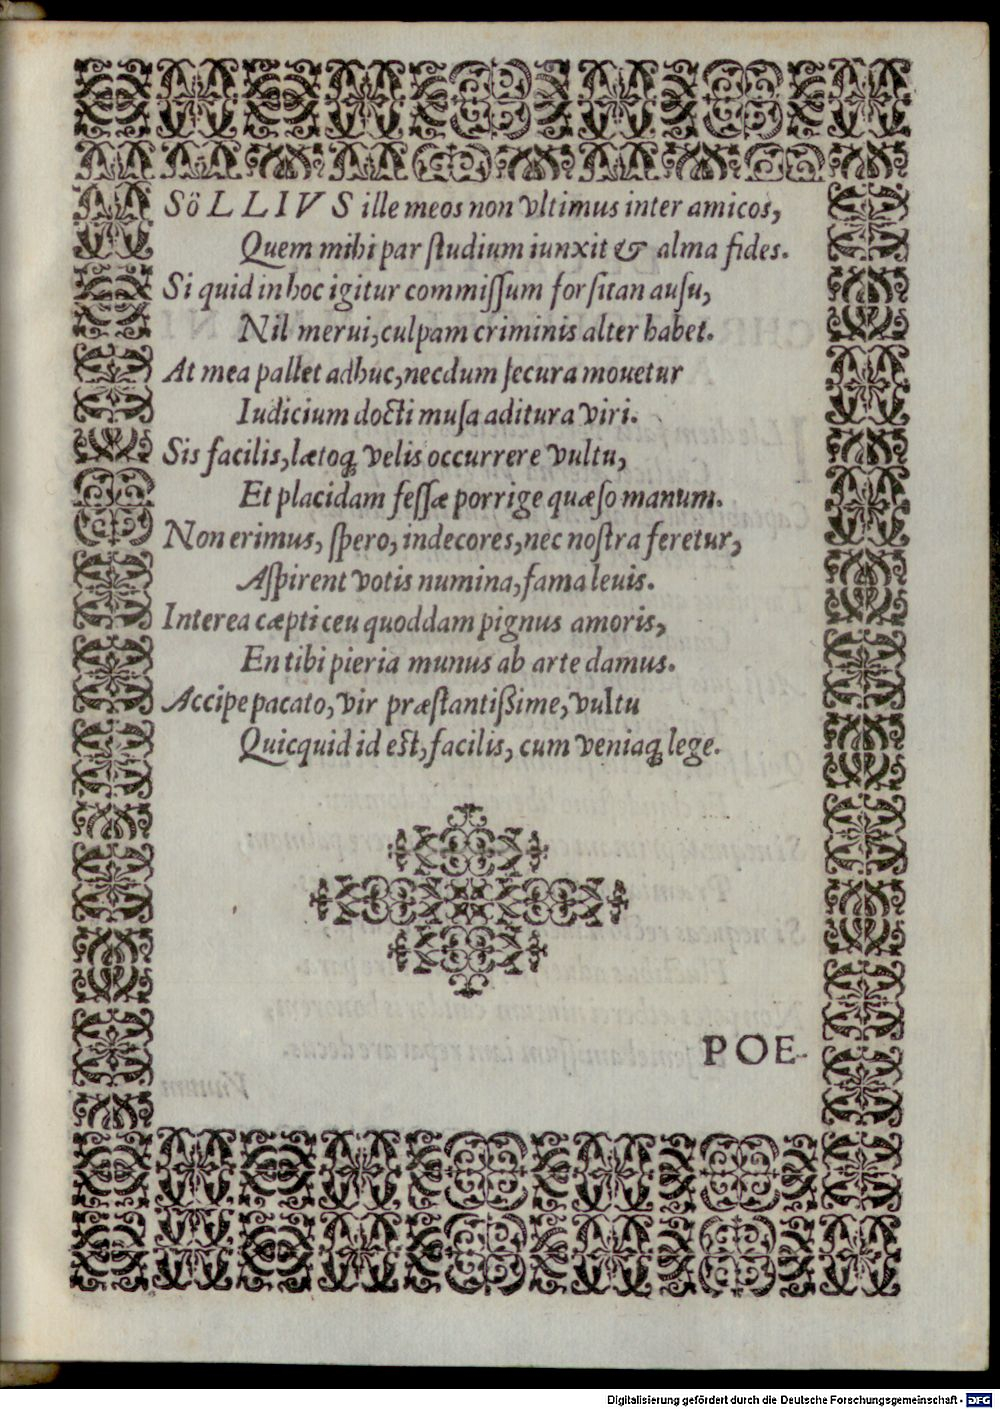 SöLLIVS ille meos non vltimus inter amicos,
Quem mihi par ſtudium iunxit & alma fides.
Si quid in hoc igitur commiſſum forſitan auſu,
Nil merui, culpam criminis alter habet.
At mea pallet adhuc, necdum ſecura mouetur
Iudicium docti muſa aditura viri.
Sis facilis, lætoq́; velis occurrere vultu,
Et placidam feſſæ porrige quæſo manum.
Non erimus, ſpero, indecores, nec noſtra feretur,
Aſpirent votis numina, fama leuis.
Interea cæpti ceu quoddam pignus amoris,
En tibi pieria munus ab arte damus.
Accipe pacato, vir præſtantißime, vultu
Quicquid id eſt, facilis, cum veniaq́; lege.
POE-
Digitalisierung gefördert durch die Deutsche Forschungsgemeinschaft - DFG